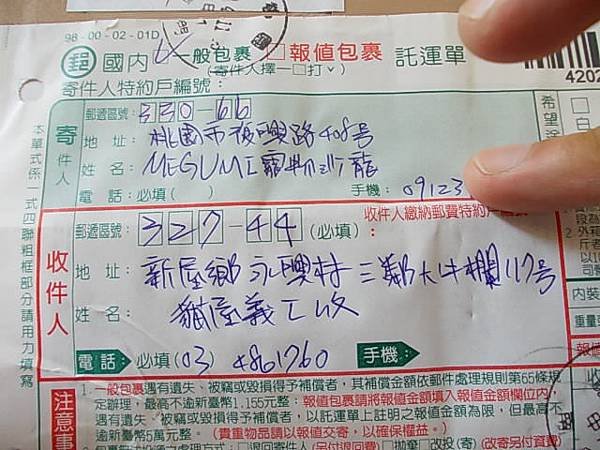 98-00-02-01D
郵 國內 一般包裹 □報値包裹 託運單
(寄件人擇一□打ˇ)
4202
寄件人特約戶編號：
寄件人
郵遞區號：330-66
地 址：桃園市復興路408号
姓 名：MEGUMI寵物沙龍
電 話：(必填)( ) 手機：09123
收件人繳納郵費特約戶
收件人
郵遞區號：327-44(必填)：
地 址：新屋鄉永興村三鄰大牛欄117号
姓 名：貓屋義工收
電話：必填(03) 4861760 手機：
本單式係一式四聯粗框部分請用力填寫
注意事
1. 一般包裹遇有遺失、被竊或毀損得予補償者，其補償金額依郵件處理規則第65條規
定辦理，最高不逾新臺幣1,155元整；報值包裹請將報值金額填入報值金額欄位內，
遇有遺失、被竊或毀損得予補償者，以託運單上註明之報值金額為限，但最高不
逾新臺幣5萬元整。(貴重物品請以報值交寄，以確保權益。)
希望
內裝
重量